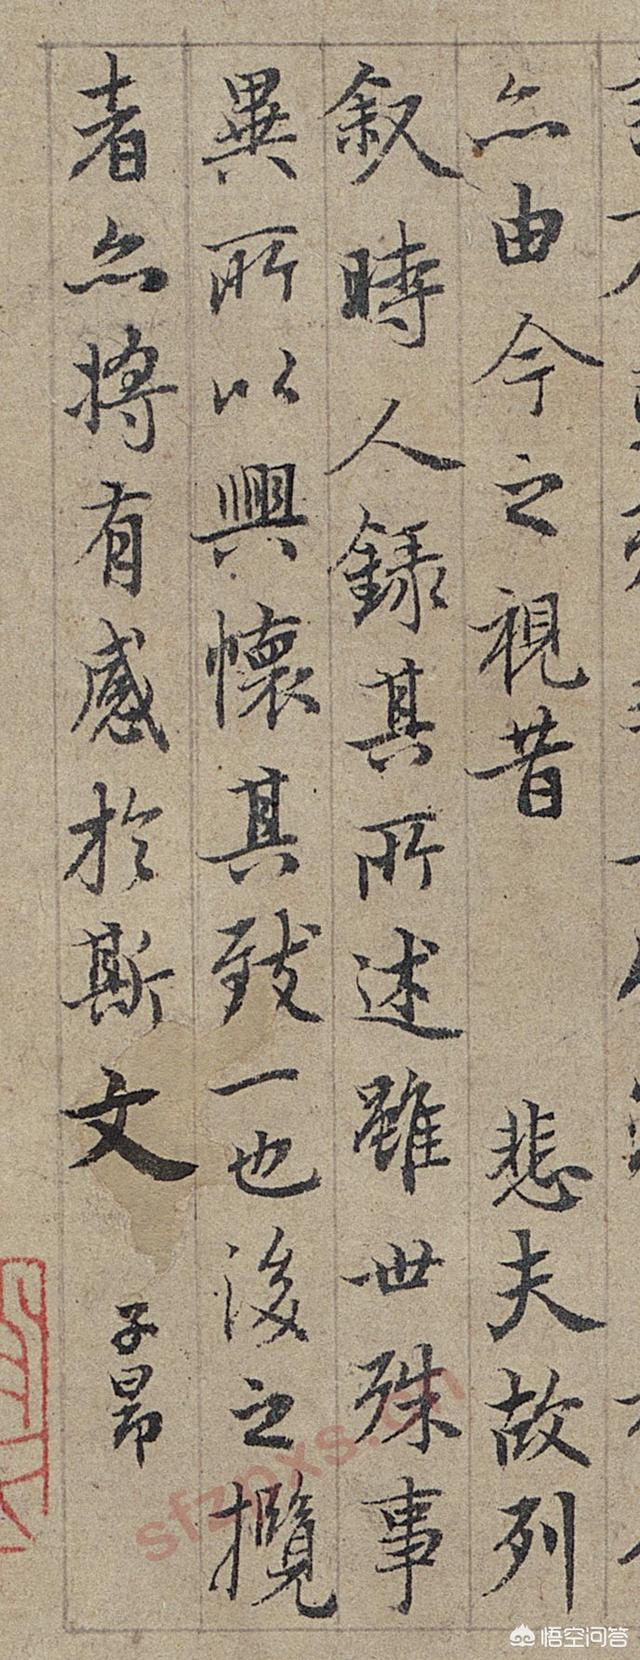 亦由今之視昔 悲夫故列
叙時人錄其所述雖世殊事
異所以興懷其致一也後之攬
者亦將有感於斯文
子昂
sfzpxs.cn
悟空问答